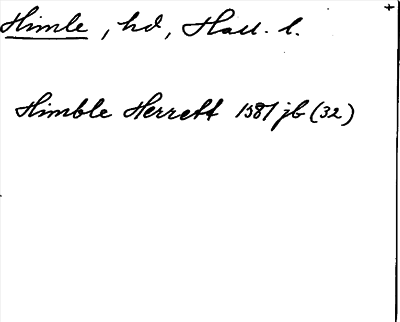 Himle, hd, Hall. l.
Himble Herrett 1581 jb (32)